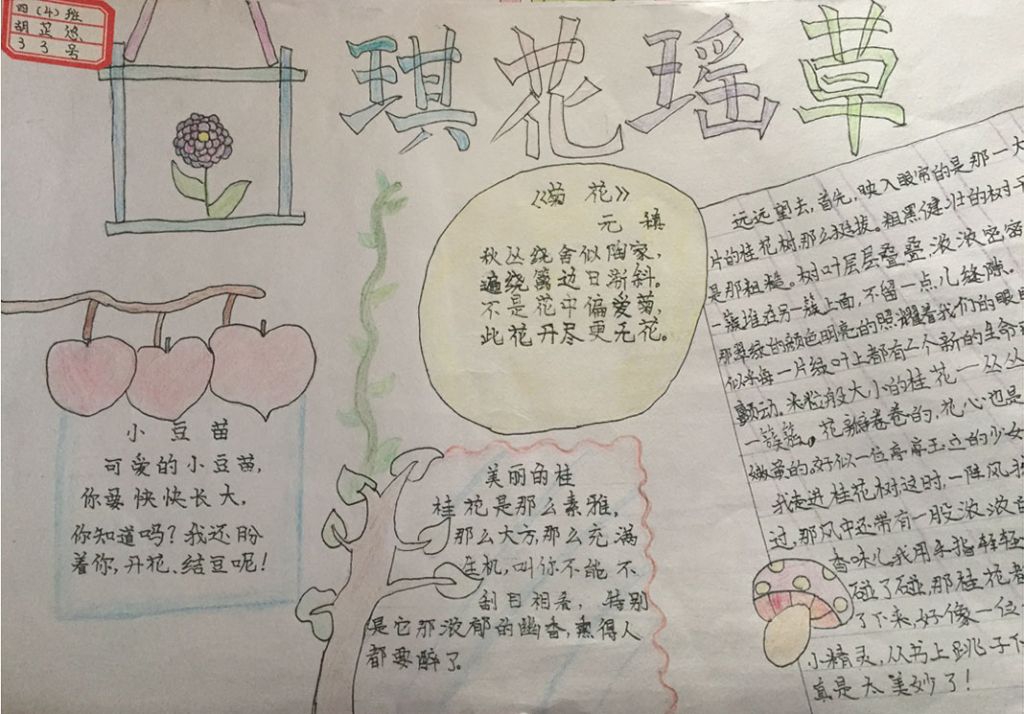 四(4)班
胡芷悠
33号
琪花瑶草
《菊花》
元稹
秋丛绕舍似陶家,
遍绕篱边日渐斜。
不是花中偏爱菊,
此花开尽更无花。
小豆苗
可爱的小豆苗,
你要快快长大,
你知道吗?我还盼
着你,开花、结豆呢!
美丽的桂
桂花是那么素雅,
那么大方,那么充满
生机,叫你不能不
刮目相看,特别
是它那浓郁的幽香,熏得人
都要醉了
远远望去,首先,映入眼帘的是那一大
片的桂花树,那么挺拔。粗黑健壮的树干
是那粗糙。树叶层层叠叠,浓浓密密
一簇堆在另一簇上面,不留一点儿缝隙。
那翠绿的颜色明亮的照耀着我们的眼
似乎每一片绿叶上都有一个新的生命
颤动。米粒般大小的桂花一丛丛
一簇簇。花瓣卷卷的,花心也是
嫩黄的,好似一位亭亭玉立的少女
我走进桂花树,这时,一阵风
过,那风中还带有一股浓浓
香味儿,我用手指轻轻
碰了碰,那桂花
了下来,好像一位
小精灵,从书上跳了下
真是太美妙了!